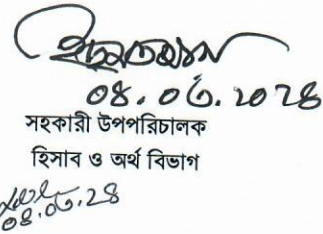 ০৪.০৬.২০২৪
সহকারী উপপরিচালক
হিসাব ও অর্থ বিভাগ
০৪.০৬.২৪